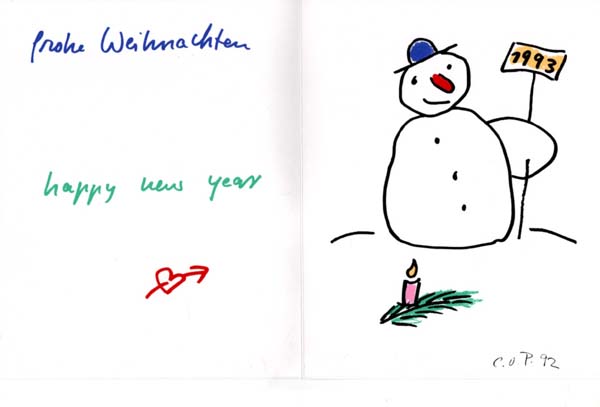 frohe Weihnachten
happy new year
1993
C. v P. 92